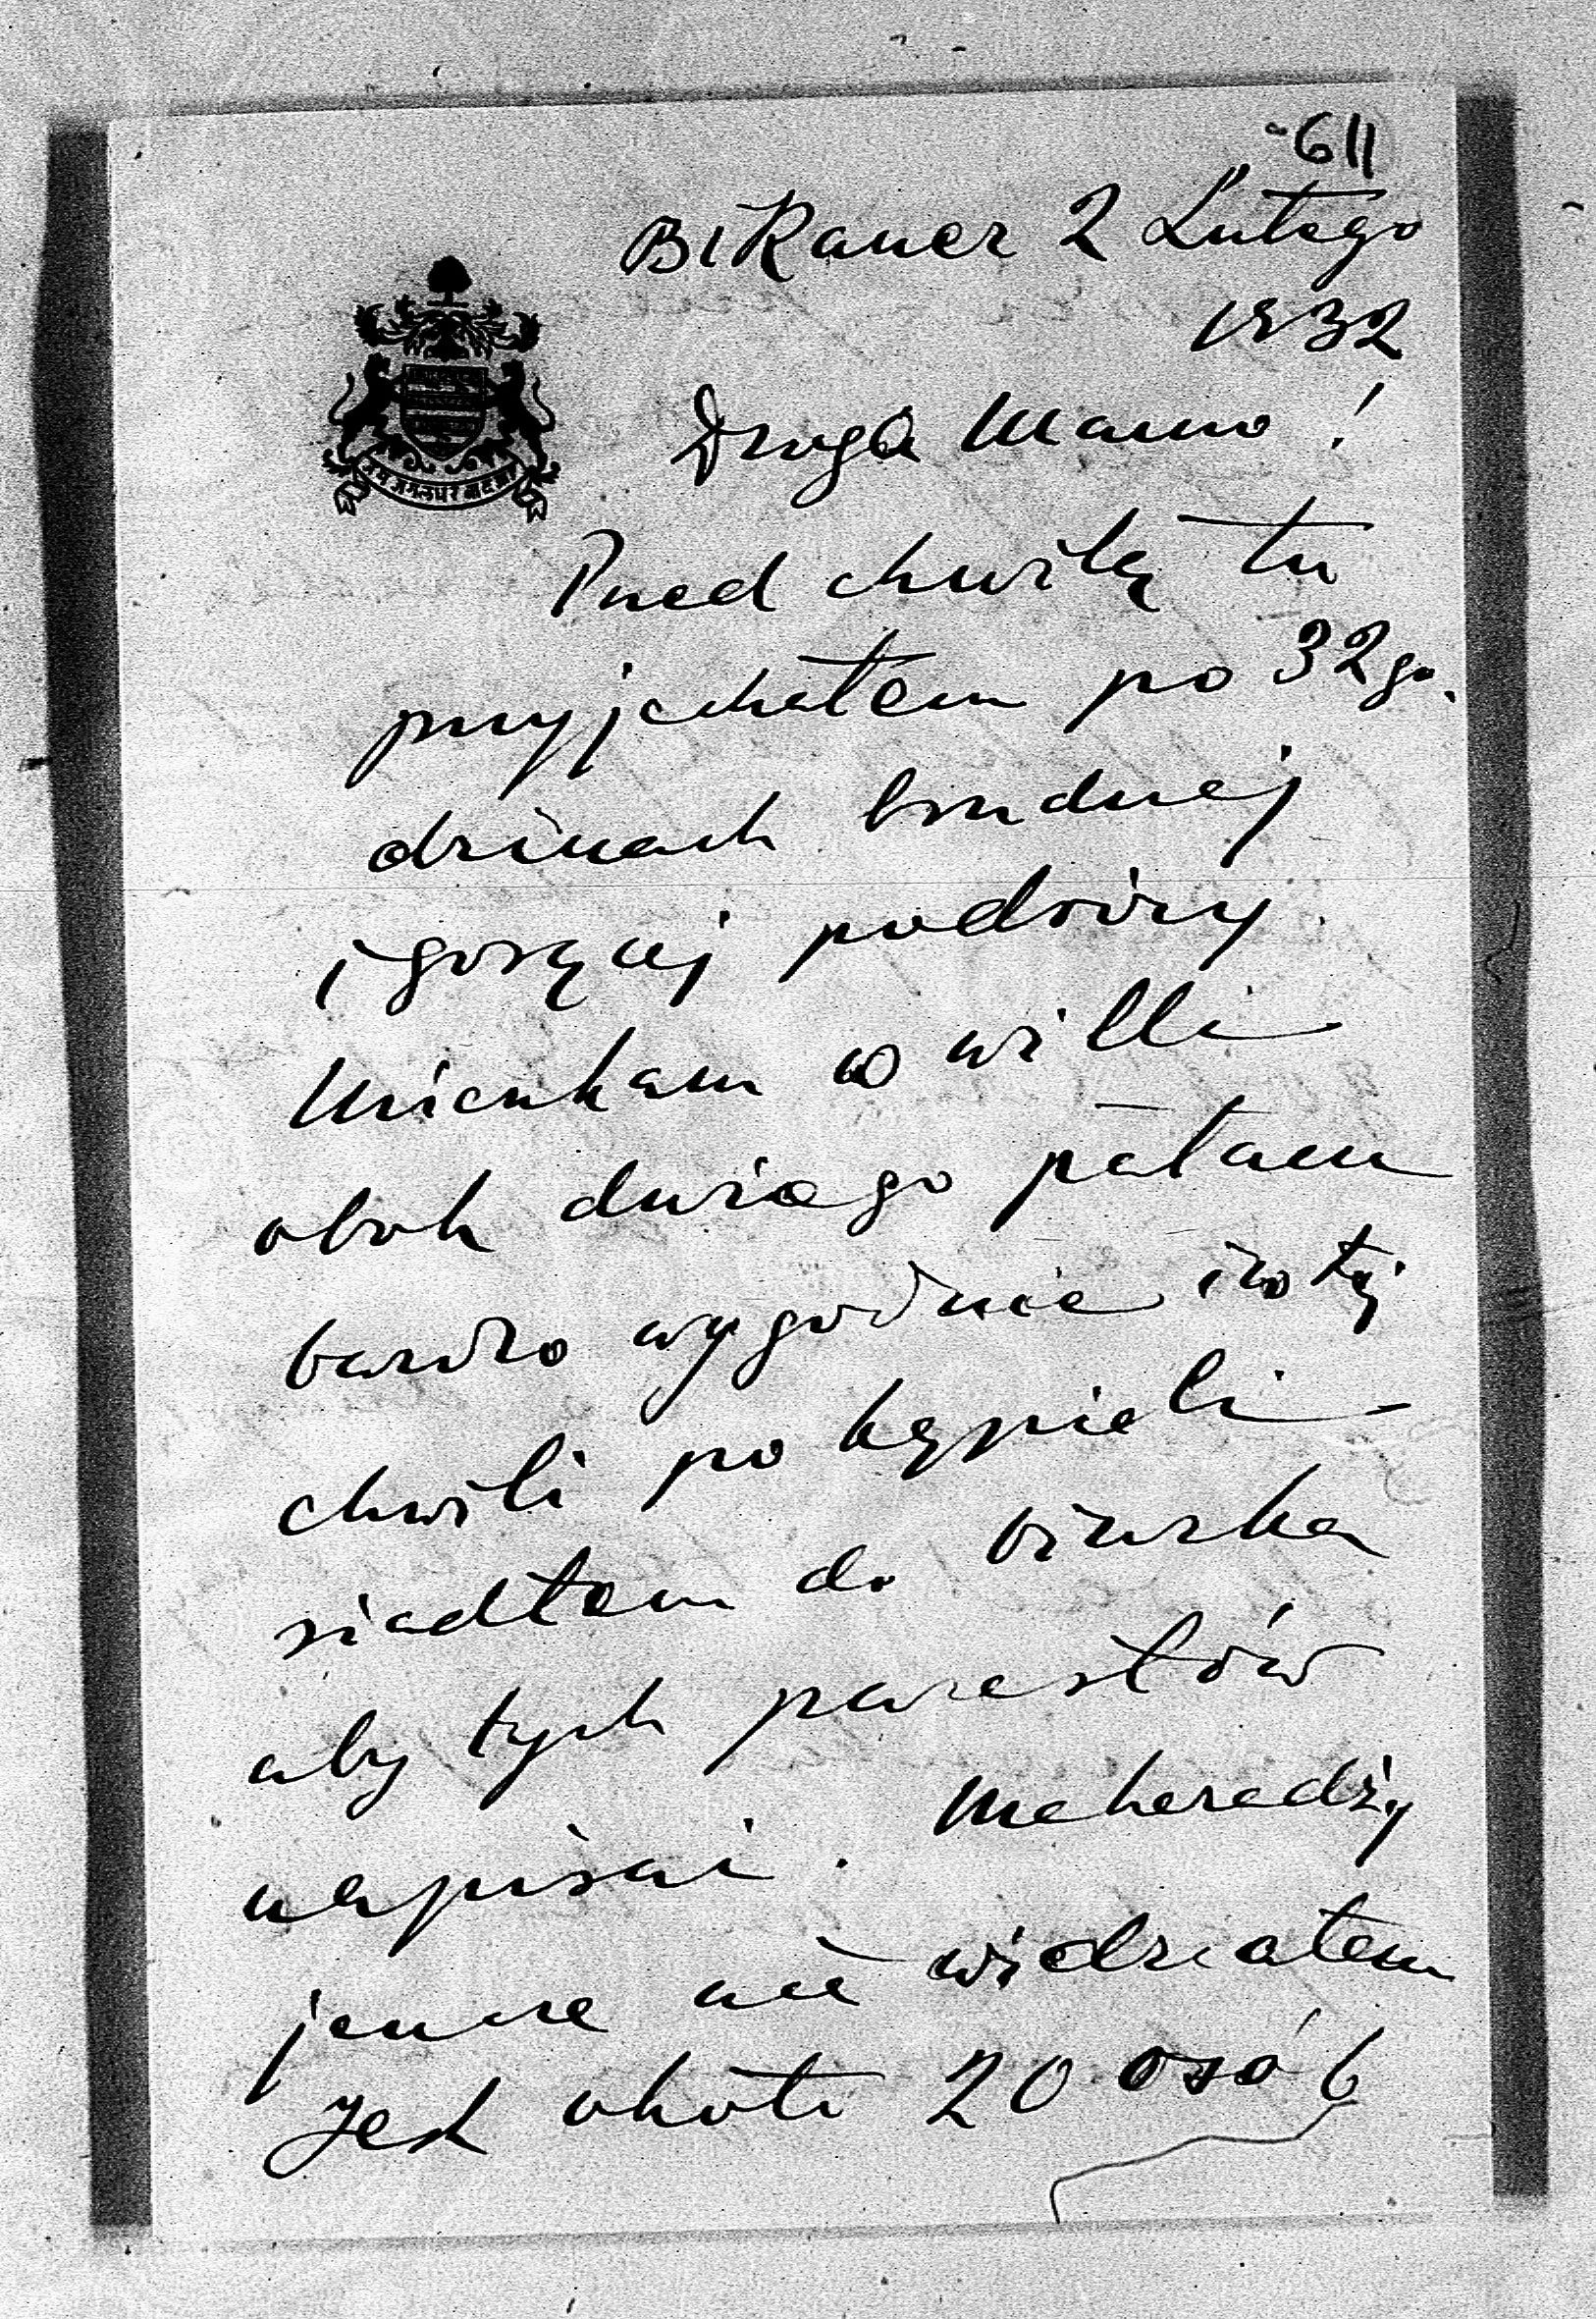 611
Bikaner 2 Lutego
1932
Droga Mamo!
जय जंगलधर बादशाह
Przed chwilą tu
przyjechałem po 32 go.
dzinach brudnej
i gorącej podróży.
Mieszkam w willi
obok dużego pałacu
bardzo wygodnie i w tej
chwili po kąpieli
siadłem do biurka
aby tych parę słów
napisać. Maharadży
jeszcze nie widziałem
Jest około 20 osób